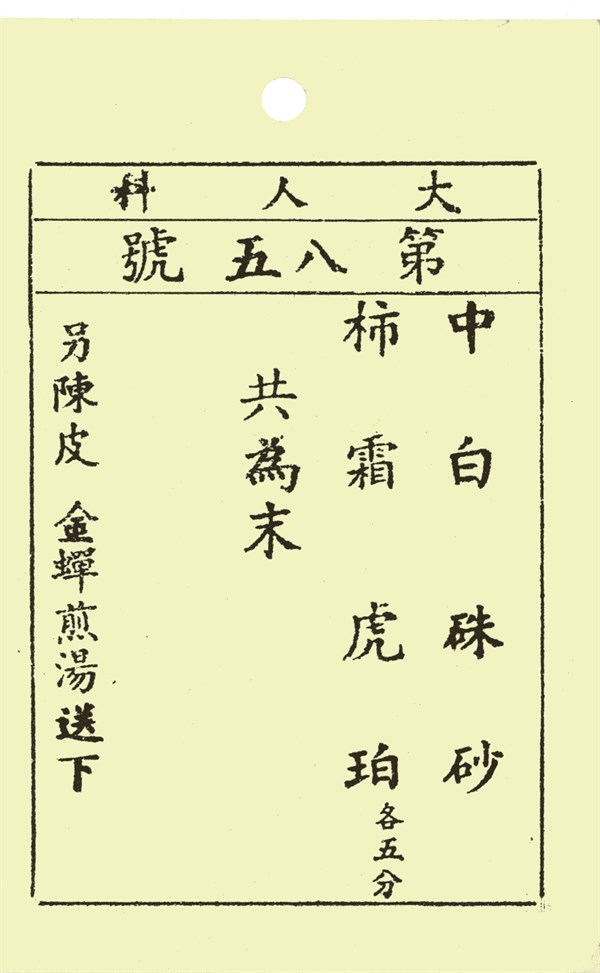 大人科
第八五號
中白硃砂
柿霜虎珀各五分
共為末
另陳皮 金蟬煎湯送下